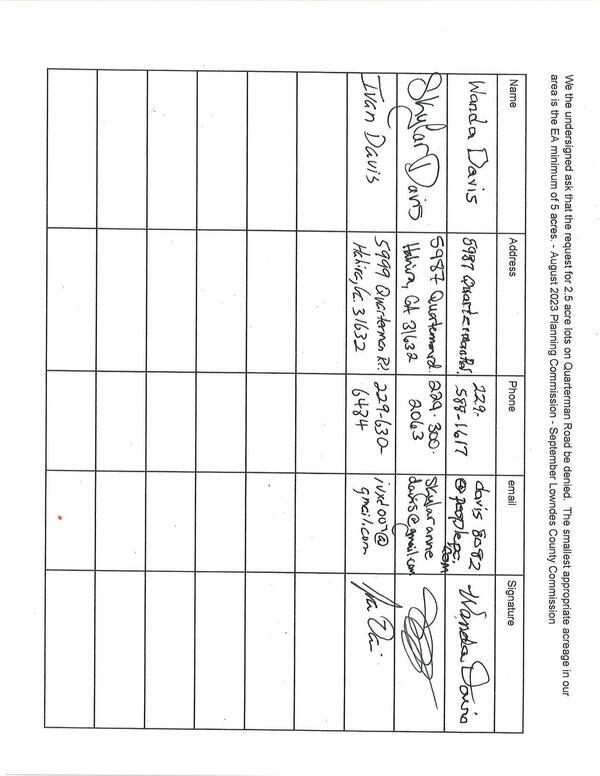 We the undersigned ask that the request for 2.5 acre lots on Quarterman Road be denied. The smallest appropriate acreage in our
area is the EA minimum of 5 acres. - August 2023 Planning Commission - September Lowndes County Commission
Name Address Phone email Signature
Wanda Davis 5987 Quarterman Rd. 229-
588-1617 davis8082
@peoplepc.
com Wanda Davis
Skylar Davis 5987 Quarterman rd.
Hahira, GA 31632 229-300-
2063 Skylaranne
davis@gmail.com
Ivan Davis 5999 Quarterman Rd.
Hahira, Ga. 31632 229-630-
6484 ivxd007@
gmail.com